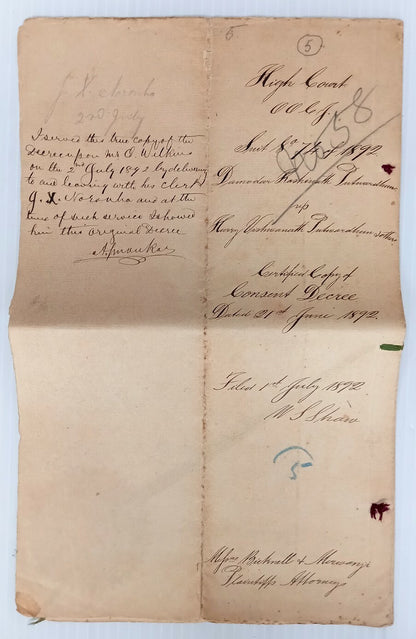 5
J. X. Noronha
2nd July
I served this true copy of the
Decree upon Mr C. Wilkins
on the 2nd July 1892 by delivering
to and leaving with his Clerk
J. X. Noronha and at the
time of such service I showed
him this original Decree
5
High Court
O O C J.
Suit No 1892
Damodar Putwardhun
Putwardhun
Certified Copy of
Consent Decree
Dated 21st June 1892
Filed 1st July 1892
W S Shaw
5
Messrs Bicknell & Merwanji
Plaintiffs Attorneys